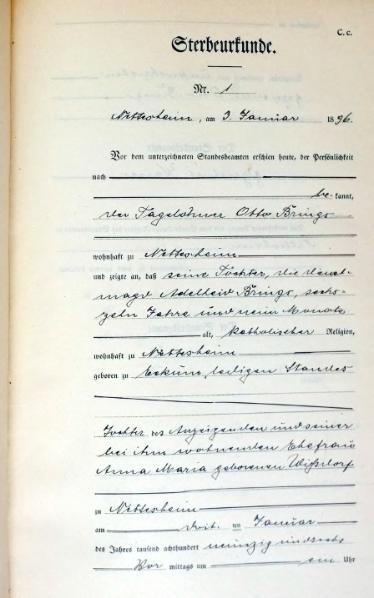 C. c.
Sterbeurkunde.
Nr. 1
Nettesheim, am 3. Januar 1896.
Vor dem unterzeichneten Standesbeamten erschien heute, der Persönlichkeit
nach
be kannt,
der Tagelöhner Otto Brings
wohnhaft zu Nettesheim
und zeigte an, daß seine Tochter, die Dienst-
magd Adelheid Brings, sechs-
zehn Jahre und neun Monate
alt, katholischer Religion,
wohnhaft zu Nettesheim
geboren zu ledigen Standes
Tochter des Anzeigenden und seiner
bei ihm wohnenden Ehefrau
Anna Maria geborenen
zu Nettesheim
am Januar
des Jahres tausend achthundert neunzig und sechs
Vor mittags um ein Uhr